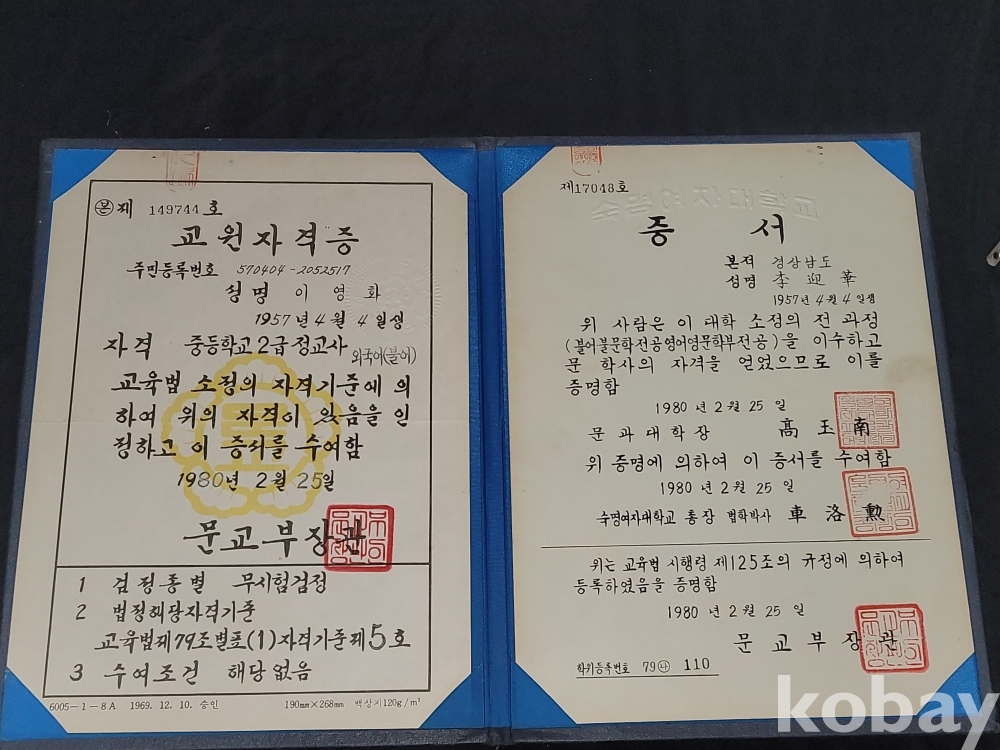 본 제 149744 호
교원자격증
주민등록번호 570404-2052517
성명 이영화
1957년 4월 4일생
자격 중등학교 2급 정교사 외국어(불어)
교육법 소정의 자격기준에 의
하여 위의 자격이 있음을 인
정하고 이 증서를 수여함
1980년 2월 25일
문교부장관
1 검정종별 무시험검정
2 법정해당자격기준
교육법제79조별표(1)자격기준제5호
3 수여조건 해당없음
6005-1-8A 1969. 12. 10. 승인 190mm×268mm 백상지120g/m²
제17048호
증 서
본적 경상남도
성명 李迎華
1957년 4월 4일생
위 사람은 이 대학 소정의 전 과정
(불어불문학전공영어영문학부전공)을 이수하고
문 학사의 자격을 얻었으므로 이를
증명함
1980 년 2월 25 일
문과대학장 高玉南
위 증명에 의하여 이 증서를 수여함
1980 년 2월 25 일
숙명여자대학교 총장 법학박사 車洛勲
위는 교육법 시행령 제125조의 규정에 의하여
등록하였음을 증명함
1980 년 2월 25 일
문교부장관
학위등록번호 79 나 110
kobay